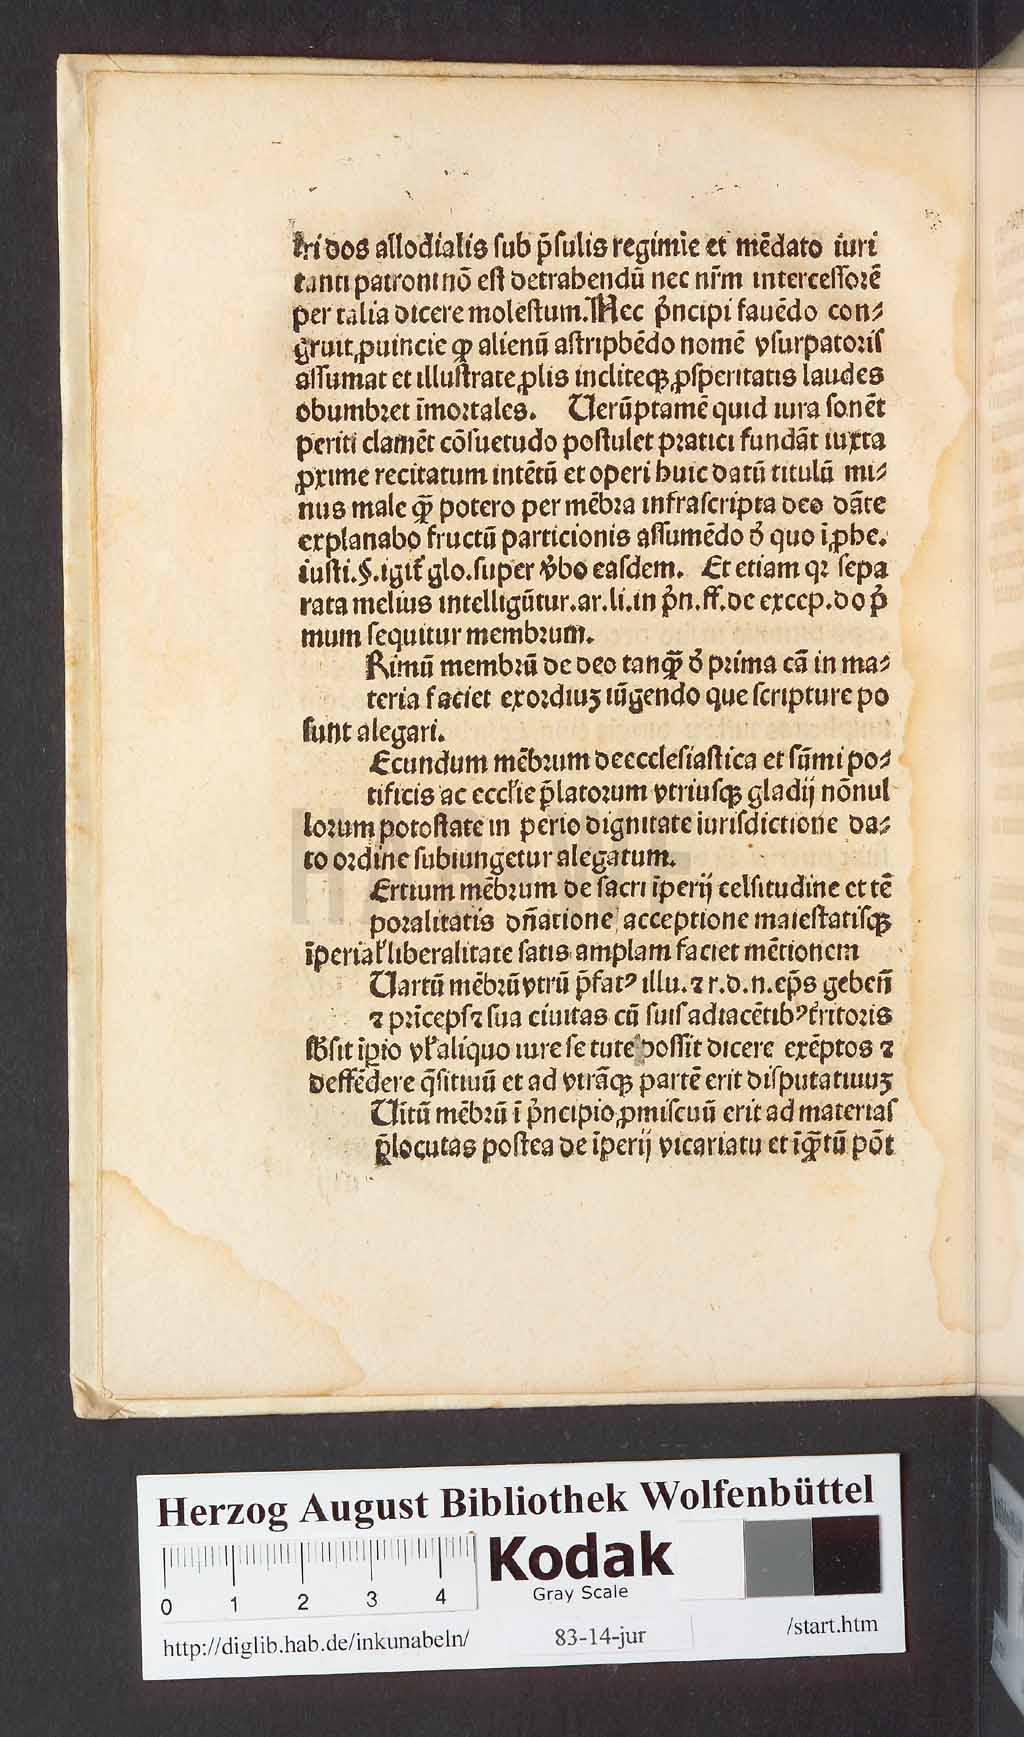 tri dos allodialis sub p̄sulis regimīe et mēdato iuri
tanti patroni nō est detrahendū nec nr̄m intercessorē
per talia dicere molestum. Nec pͥncipi fauēdo con⸗
gruit ꝓuincie ꝙ alienū astripbēdo nomē vsurpatoris
assumat et illustrate ꝓlis incliteqꝫ ꝓsperitatis laudes
obumbret īmortales. Uerūptamē quid iura sonēt
periti clamēt cōsuetudo postulet pratici fundāt iuxta
ꝓxime recitatum intētū et operi huic datū titulū mi⸗
nus male qꝫ̄ potero per mēbra infrascripta deo dāte
explanabo fructū particionis assumēdo dͥ quo ī ꝓhe.
iusti.§.igit᷑ glo.super v̓bo easdem. Et etiam qꝛ sepa
rata melius intelligūtur.ar.li.in pͥn.ff.de excep.do pͥ
mum sequitur membrum.
Rimū membrū de deo tanqꝫ̄ dͥ prima cā in ma⸗
teria faciet exordiuꝫ iūgendo que scripture po
sunt alegari.
Ecundum mēbrum de ecclesiastica et sūmi po⸗
tificis ac eccl̓ie p̄latorum vtriusqꝫ gladij nōnul
lorum potostate in perio dignitate iurisdictione da⸗
to ordine subiungetur alegatum.
Ertium mēbrum de sacri īperij celsitudine et tē
poralitatis dn̄atione acceptione maiestatisqꝫ
īperial̓ liberalitate satis amplam faciet mētionem
Uartū mēbrū vtrū p̄fatꝰ illu. ⁊ r.d.n.ep̄s geben̄
⁊ prīceps ⁊ sua ciuitas cū suis adiacētibꝰ t̓ritoris
sb̄sit īpio vl̓ aliquo iure se tute possit dicere exēptos ⁊
deffēdere q̄sitiuū et ad vtrāqꝫ partē erit disputatiuuꝫ
Uitū mēbrū ī pͥncipio ꝓmiscuū erit ad materias
p̄locutas postea de īperij vicariatu et īqꝫ̄tū pōt
HAB WF
Herzog August Bibliothek Wolfenbüttel
Kodak
Gray Scale
0 1 2 3 4
http://diglib.hab.de/inkunabeln/ 83-14-jur /start.htm